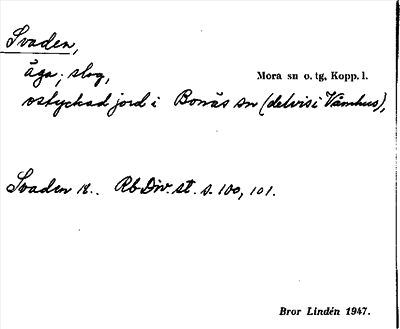 Svaden,
äga; skog, Mora sn o. tg, Kopp. l.
ostyckad jord i Bonäs sn (delvis i Våmhus),
Svaden 18.. Rb Div. st. s. 100, 101.
Bror Lindén 1947.